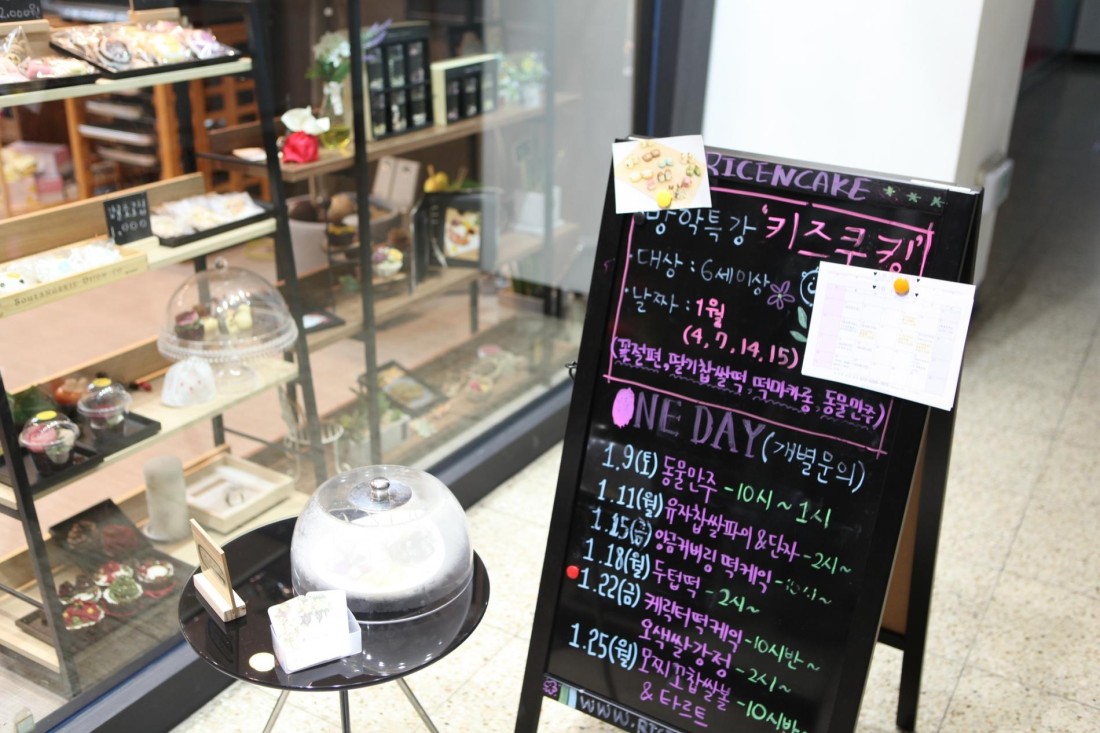 RICENCAKE
방학특강 '키즈쿠킹'
· 대상 : 6세이상
· 날짜 : 1월
(4, 7, 14, 15)
(꽃절편, 딸기찹쌀떡, 떡마카롱, 동물만주)
ONE DAY (개별문의)
1.9(토) 동물만주 - 10시 ~ 1시
1.11(월) 유자찹쌀파이 & 단자 - 2시 ~
1.15(금) 앙금커버링 떡케익
1.18(월) 두텁떡 - 2시 ~
1.22(금) 케릭터떡케익 - 10시반 ~
오색쌀강정 - 2시 ~
1.25(월) 모찌꼬찹쌀볼 - 10시반
& 타르트
1,000